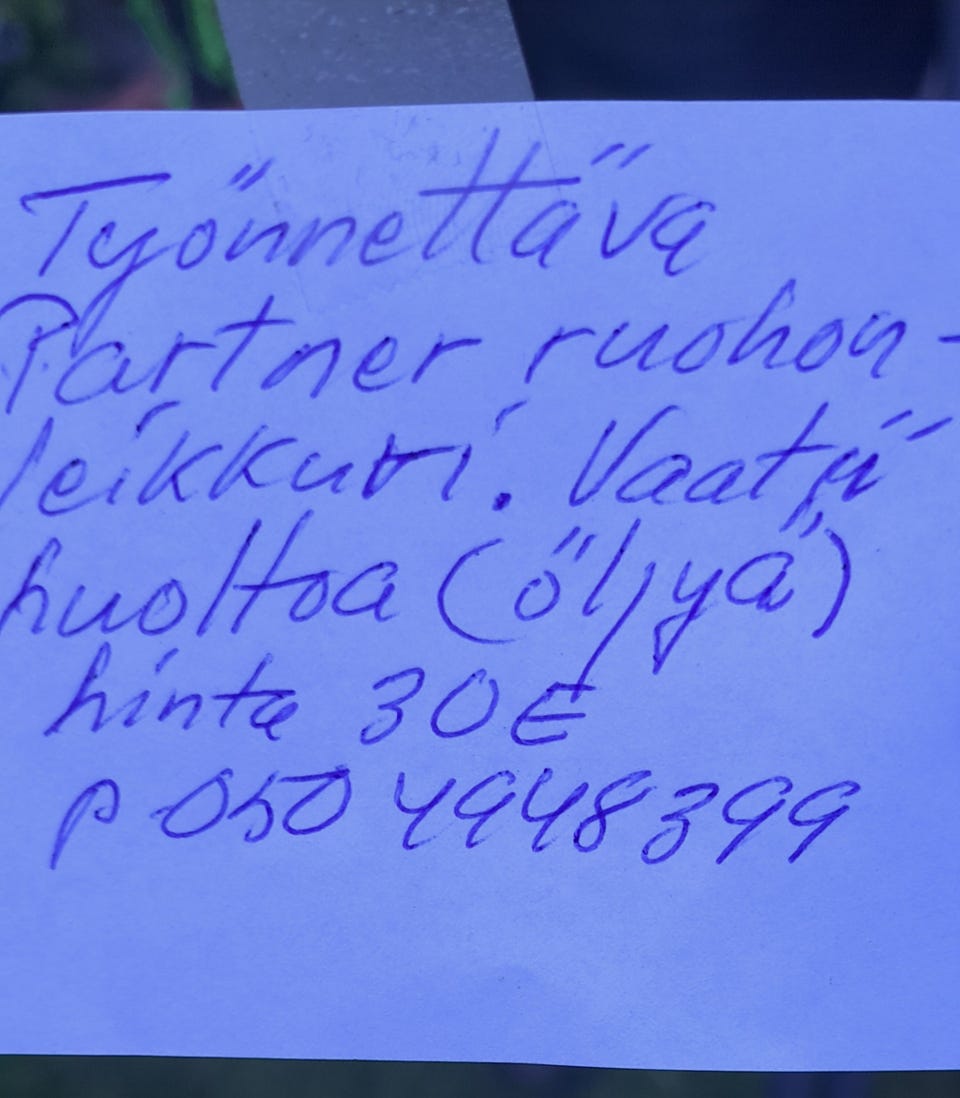 Työnnettävä
Partner ruohon-
leikkuri. Vaatii
huoltoa (öljyä)
hinta 30 €
p 050 4948399